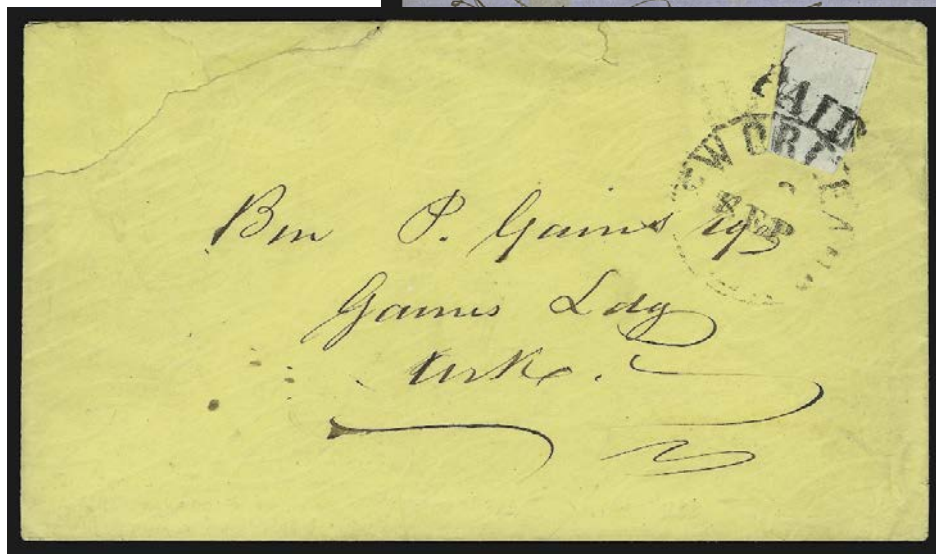 PAID
NEW ORLEANS
SEP
Ben P. Gaines Esq
Gaines Ldg
Arks.